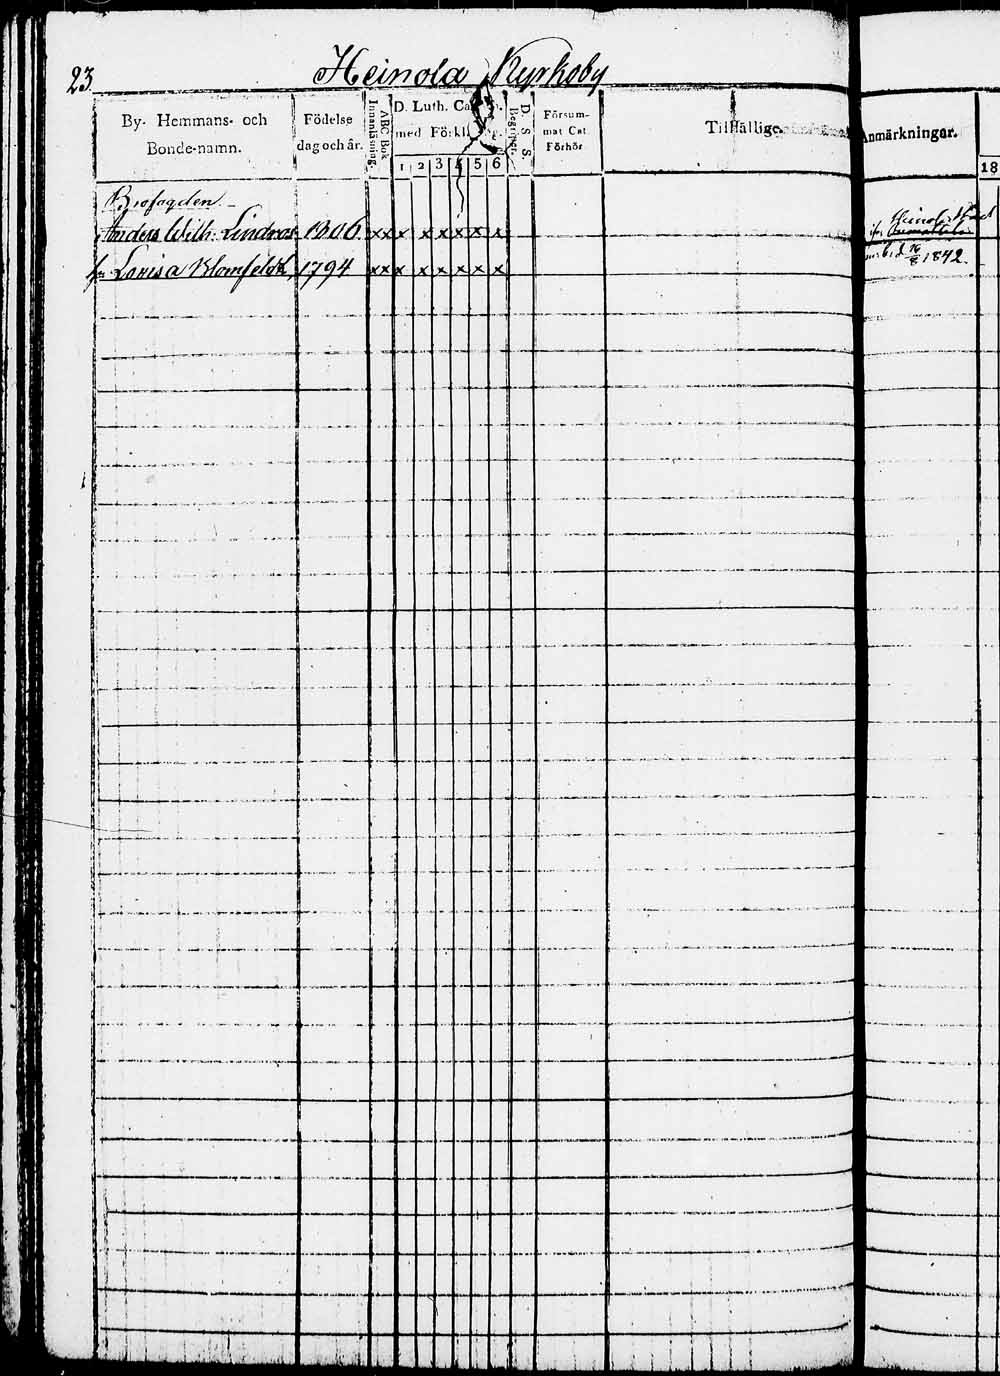 23
Heinola Kyrkoby
By- Hemmans- och
Bonde-namn.
Födelse
dag och år.
ABC Bok
Innanläsning.
D. Luth. Cat.
med Förkl.
1 2 3 4 5 6
D. S. S.
Begripet.
Försum-
mat Cat.
Förhör
Tillfällige
Anmärkningar.
18
Brofogden
Anders Wilh. Lindros 1806 x x x x x x x x
Lovisa Blomfeldt, 1794 x x x x x x x x
1842.